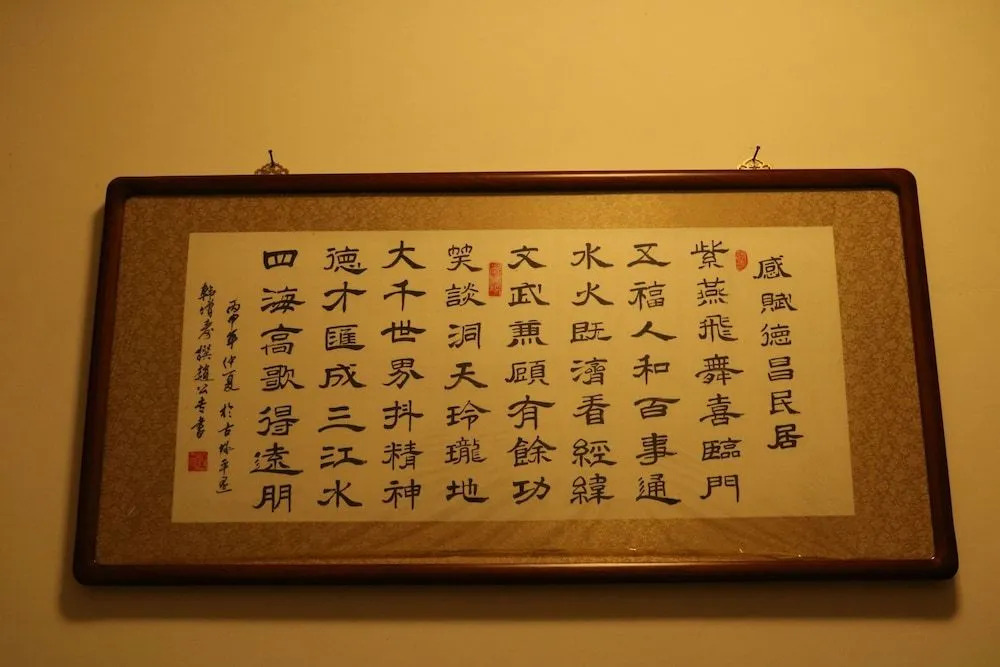 感賦德昌民居
紫燕飛舞喜臨門
五福人和百事通
水火既濟看經緯
文武兼顧有餘功
笑談洞天玲瓏地
大千世界抖精神
德才匯成三江水
四海高歌得遠朋
丙申年仲夏於古
撰趙公書